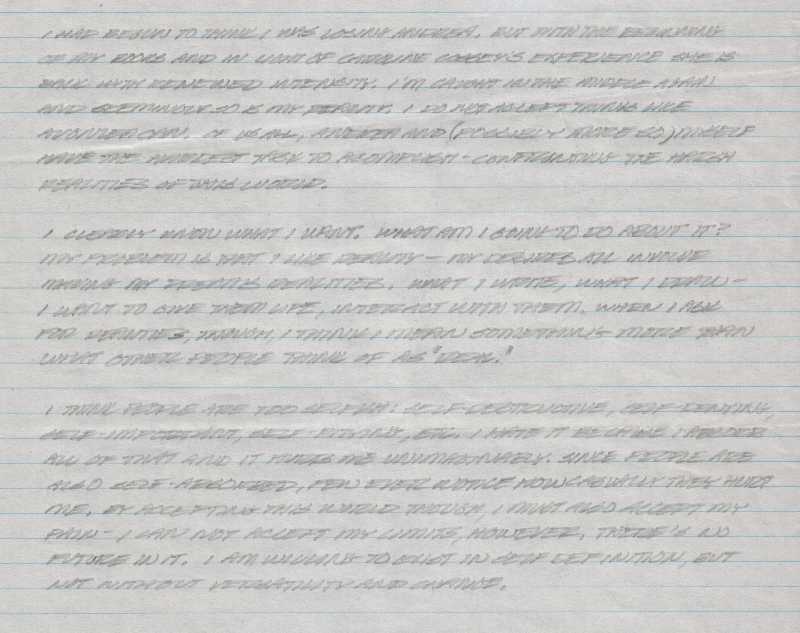 I HAD BEGUN TO THINK I WAS LOSING ANDREA. BUT WITH THE BEGINNING
OF MY BOOKS AND IN LIGHT OF CAROLINE COSSEY'S EXPERIENCE SHE IS
BACK WITH RENEWED INTENSITY. I'M CAUGHT IN THE MIDDLE AGAIN
AND SEEMINGLY SO IS MY REALITY. I DO NOT ACCEPT THINGS LIKE
OF US ALL, ANDREA AND (POSSIBLY MORE SO) MYSELF
HAVE THE HARDEST TASK TO ACCOMPLISH - CONFRONTING THE HARSH
REALITIES OF THIS WORLD.
I CLEARLY KNOW WHAT I WANT. WHAT AM I GOING TO DO ABOUT IT?
MY PROBLEM IS THAT I LIKE REALITY - MY DESIRES ALL INVOLVE
MAKING MY DREAMS REALITIES. WHAT I WRITE, WHAT I DRAW -
I WANT TO GIVE THEM LIFE, INTERACT WITH THEM. WHEN I ASK
FOR REALITIES, THOUGH, I THINK I MEAN SOMETHING MORE THAN
WHAT OTHER PEOPLE THINK OF AS "REAL."
I THINK PEOPLE ARE TOO SELFISH: SELF-DESTRUCTIVE, SELF-DENYING,
SELF-IMPORTANT, SELF-PITYING, ETC. I HATE IT BECAUSE I ABSORB
ALL OF THAT AND IT HURTS ME UNIMAGINABLY. SINCE PEOPLE ARE
ALSO SELF-ABSORBED, FEW EVER NOTICE HOW CASUALLY THEY HURT
ME. BY ACCEPTING THIS WORLD THOUGH, I MUST ALSO ACCEPT MY
PAIN - I CAN NOT ACCEPT MY LIMITS, HOWEVER. THERE'S NO
FUTURE IN IT. I AM WILLING TO EXIST IN SELF DEFINITION, BUT
NOT WITHOUT VERSATILITY AND CHANGE.